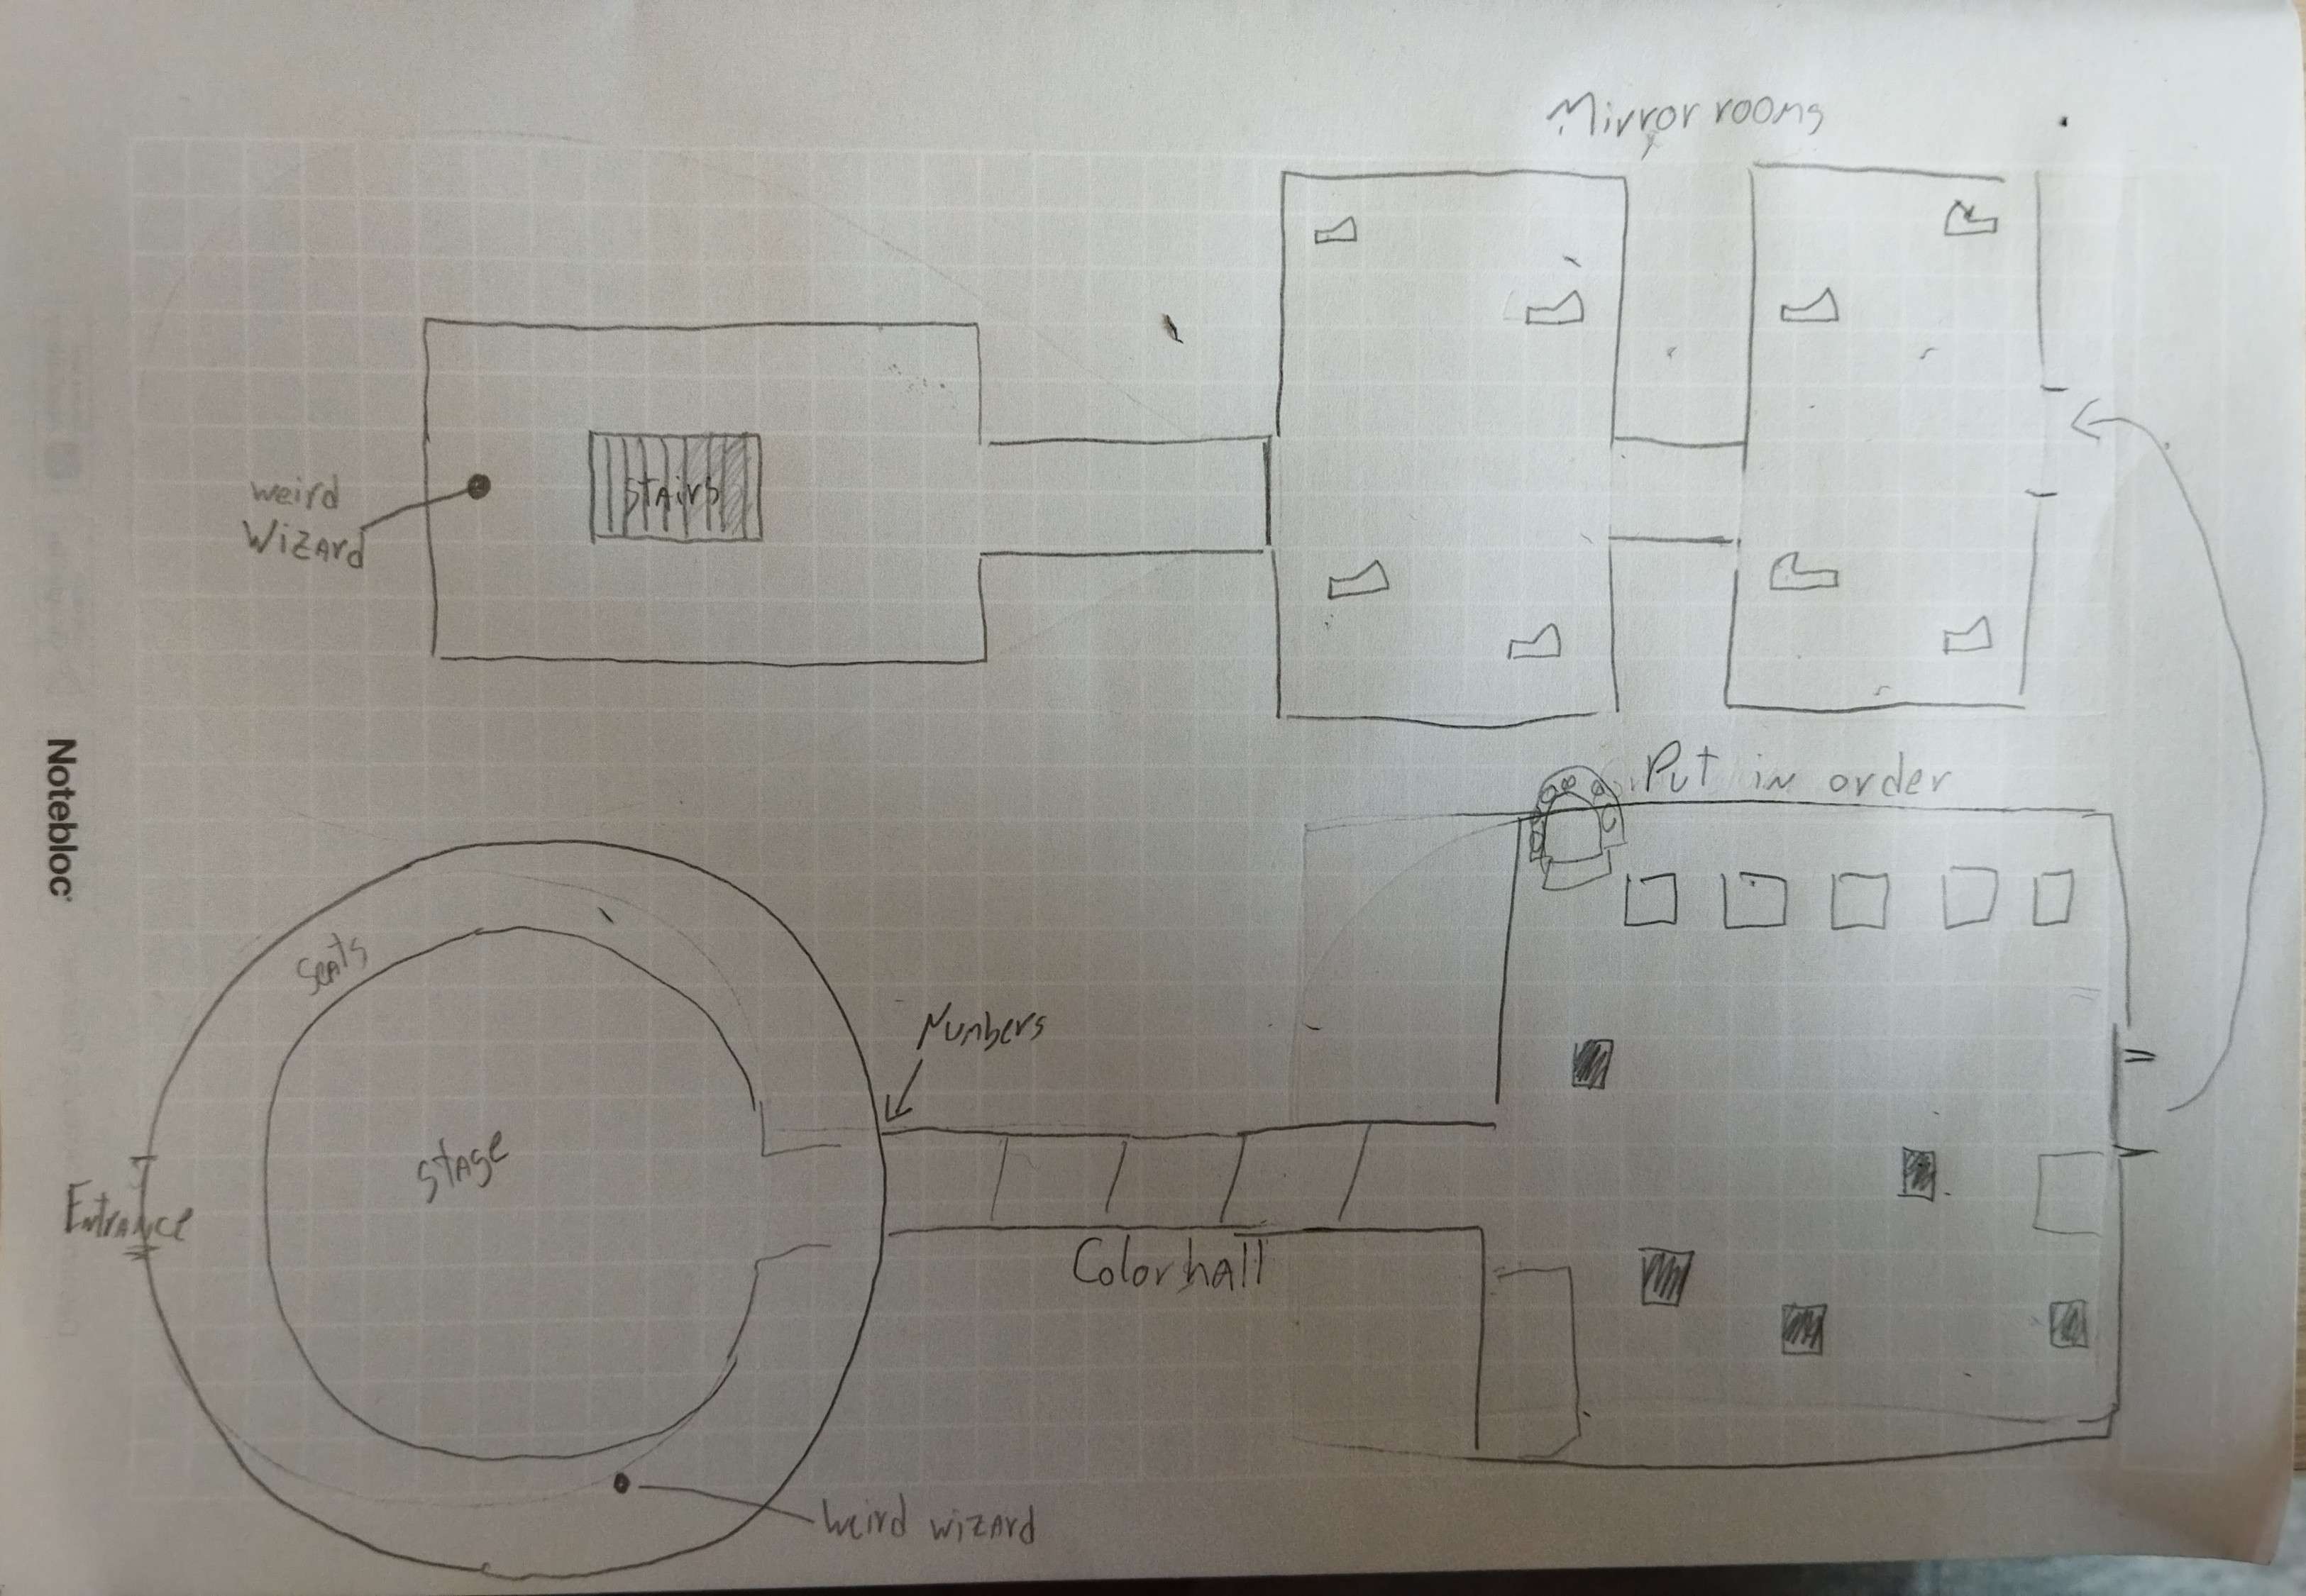 Mirror rooms
weird
Wizard
Stairs
Put in order
Notebloc
Seats
Numbers
Stage
Entrance
Color hall
Weird wizard